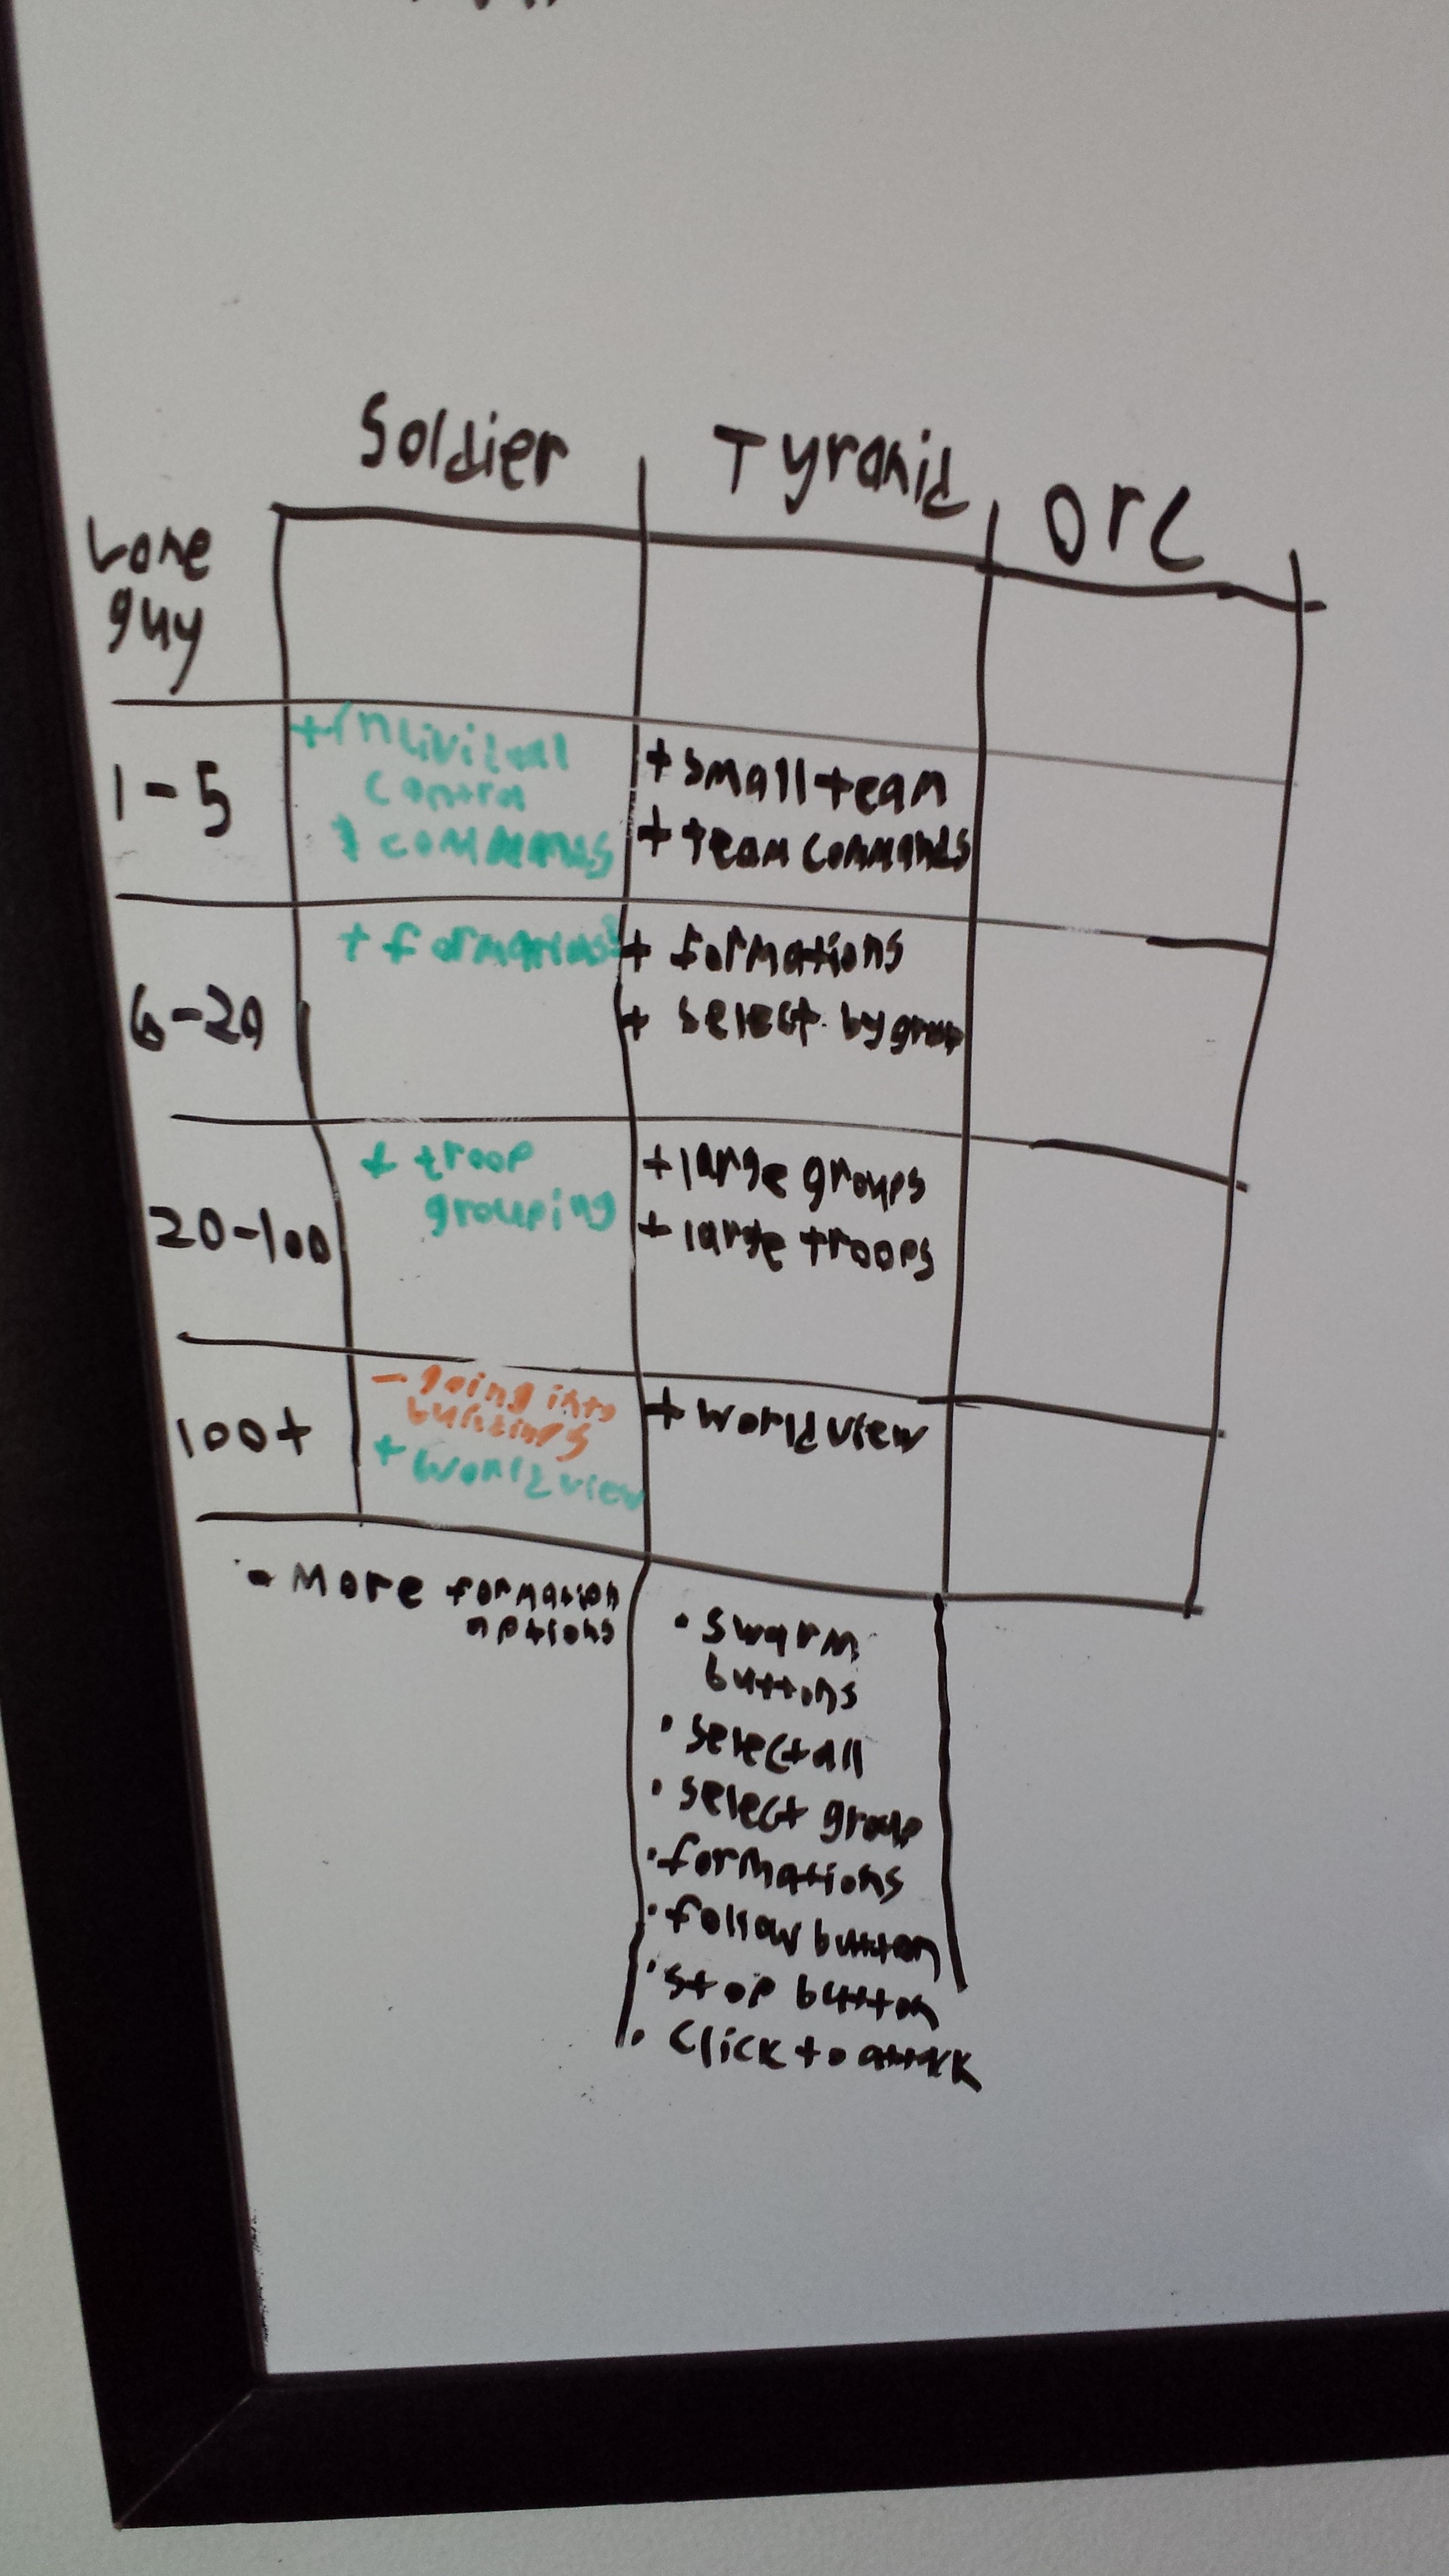 Soldier Tyranid Orc
Lone
guy
1-5
+ individual
control
+ commands
+ small team
+ team commands
6-20
+ formations
+ formations
+ select by group
20-100
+ troop
grouping
+ large groups
+ large troops
100+
- going into
buildings
+ world view
+ world view
- More formation
options
• swarm
buttons
• select all
• select group
• formations
• follow button
• stop button
• click to attack